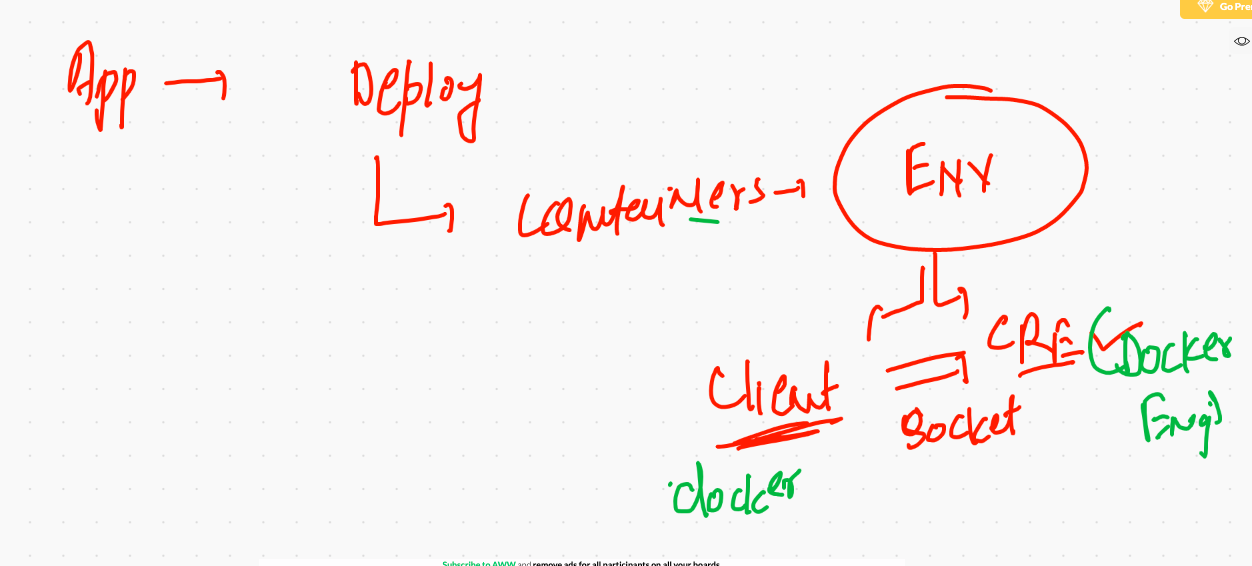 Go Pre
App → Deploy
Containers →
ENV
CRE (Docker
Eng)
Client
Socket
docker
Subscribe to AWW and remove ads for all participants on all your boards